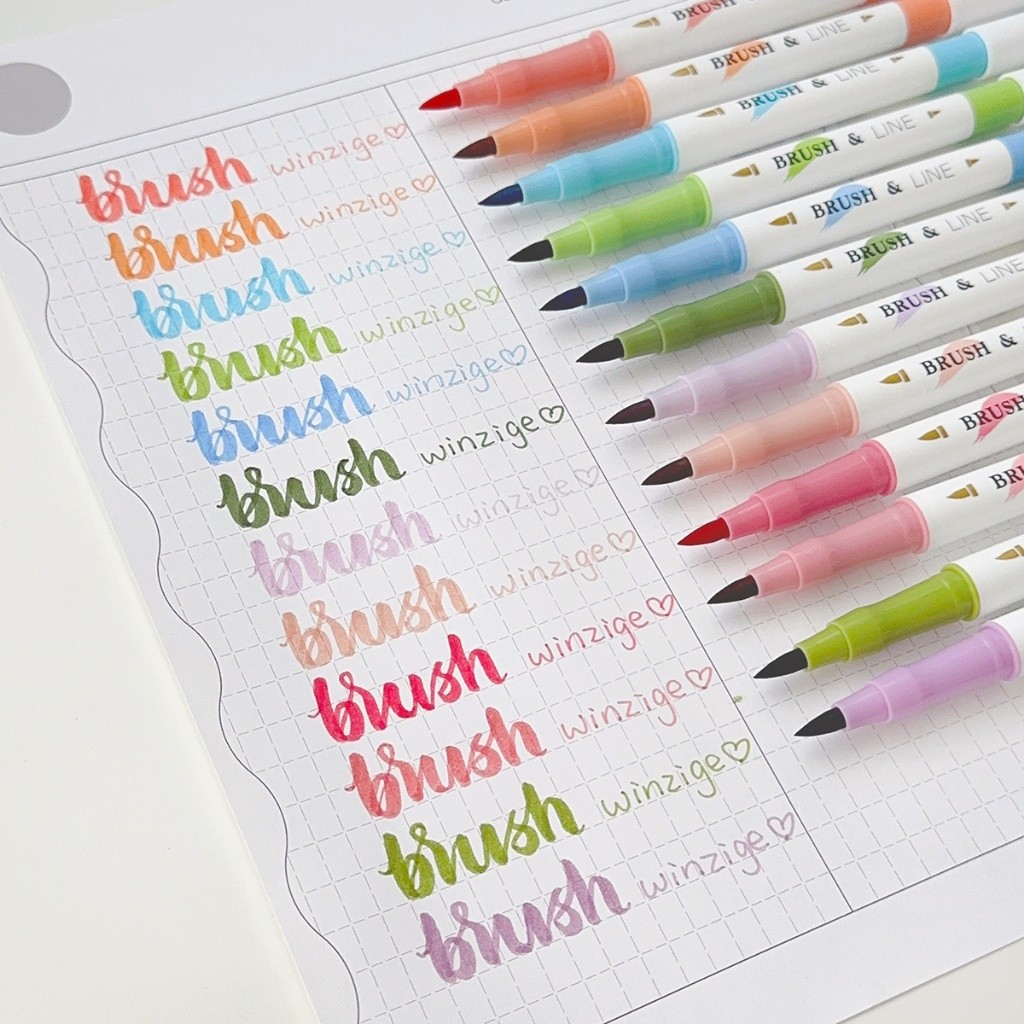 brush winzige♡
brush winzige♡
brush winzige♡
brush winzige♡
brush winzige♡
brush winzige♡
brush winzige♡
brush winzige♡
brush winzige♡
brush winzige♡
brush winzige♡
brush winzige♡
BRUSH
BRUSH & LINE
BRUSH & LINE
BRUSH & LINE
BRUSH & LINE
BRUSH & LINE
BRUSH & LINE
BRUSH &
BRUSH